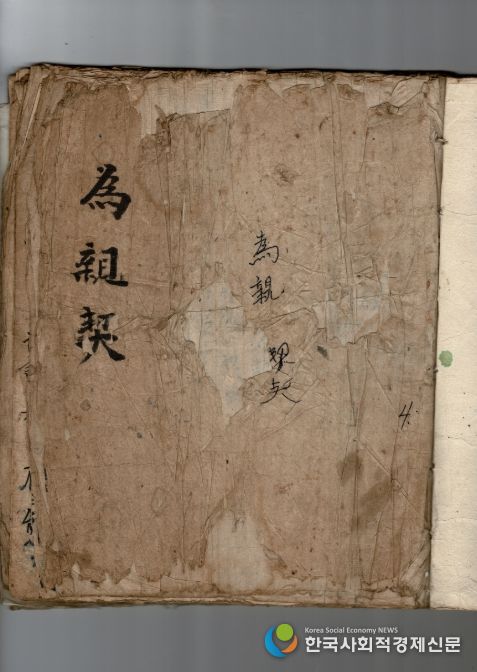 為親契
為親
契
4.
Korea Social Economy NEWS
한국사회적경제신문